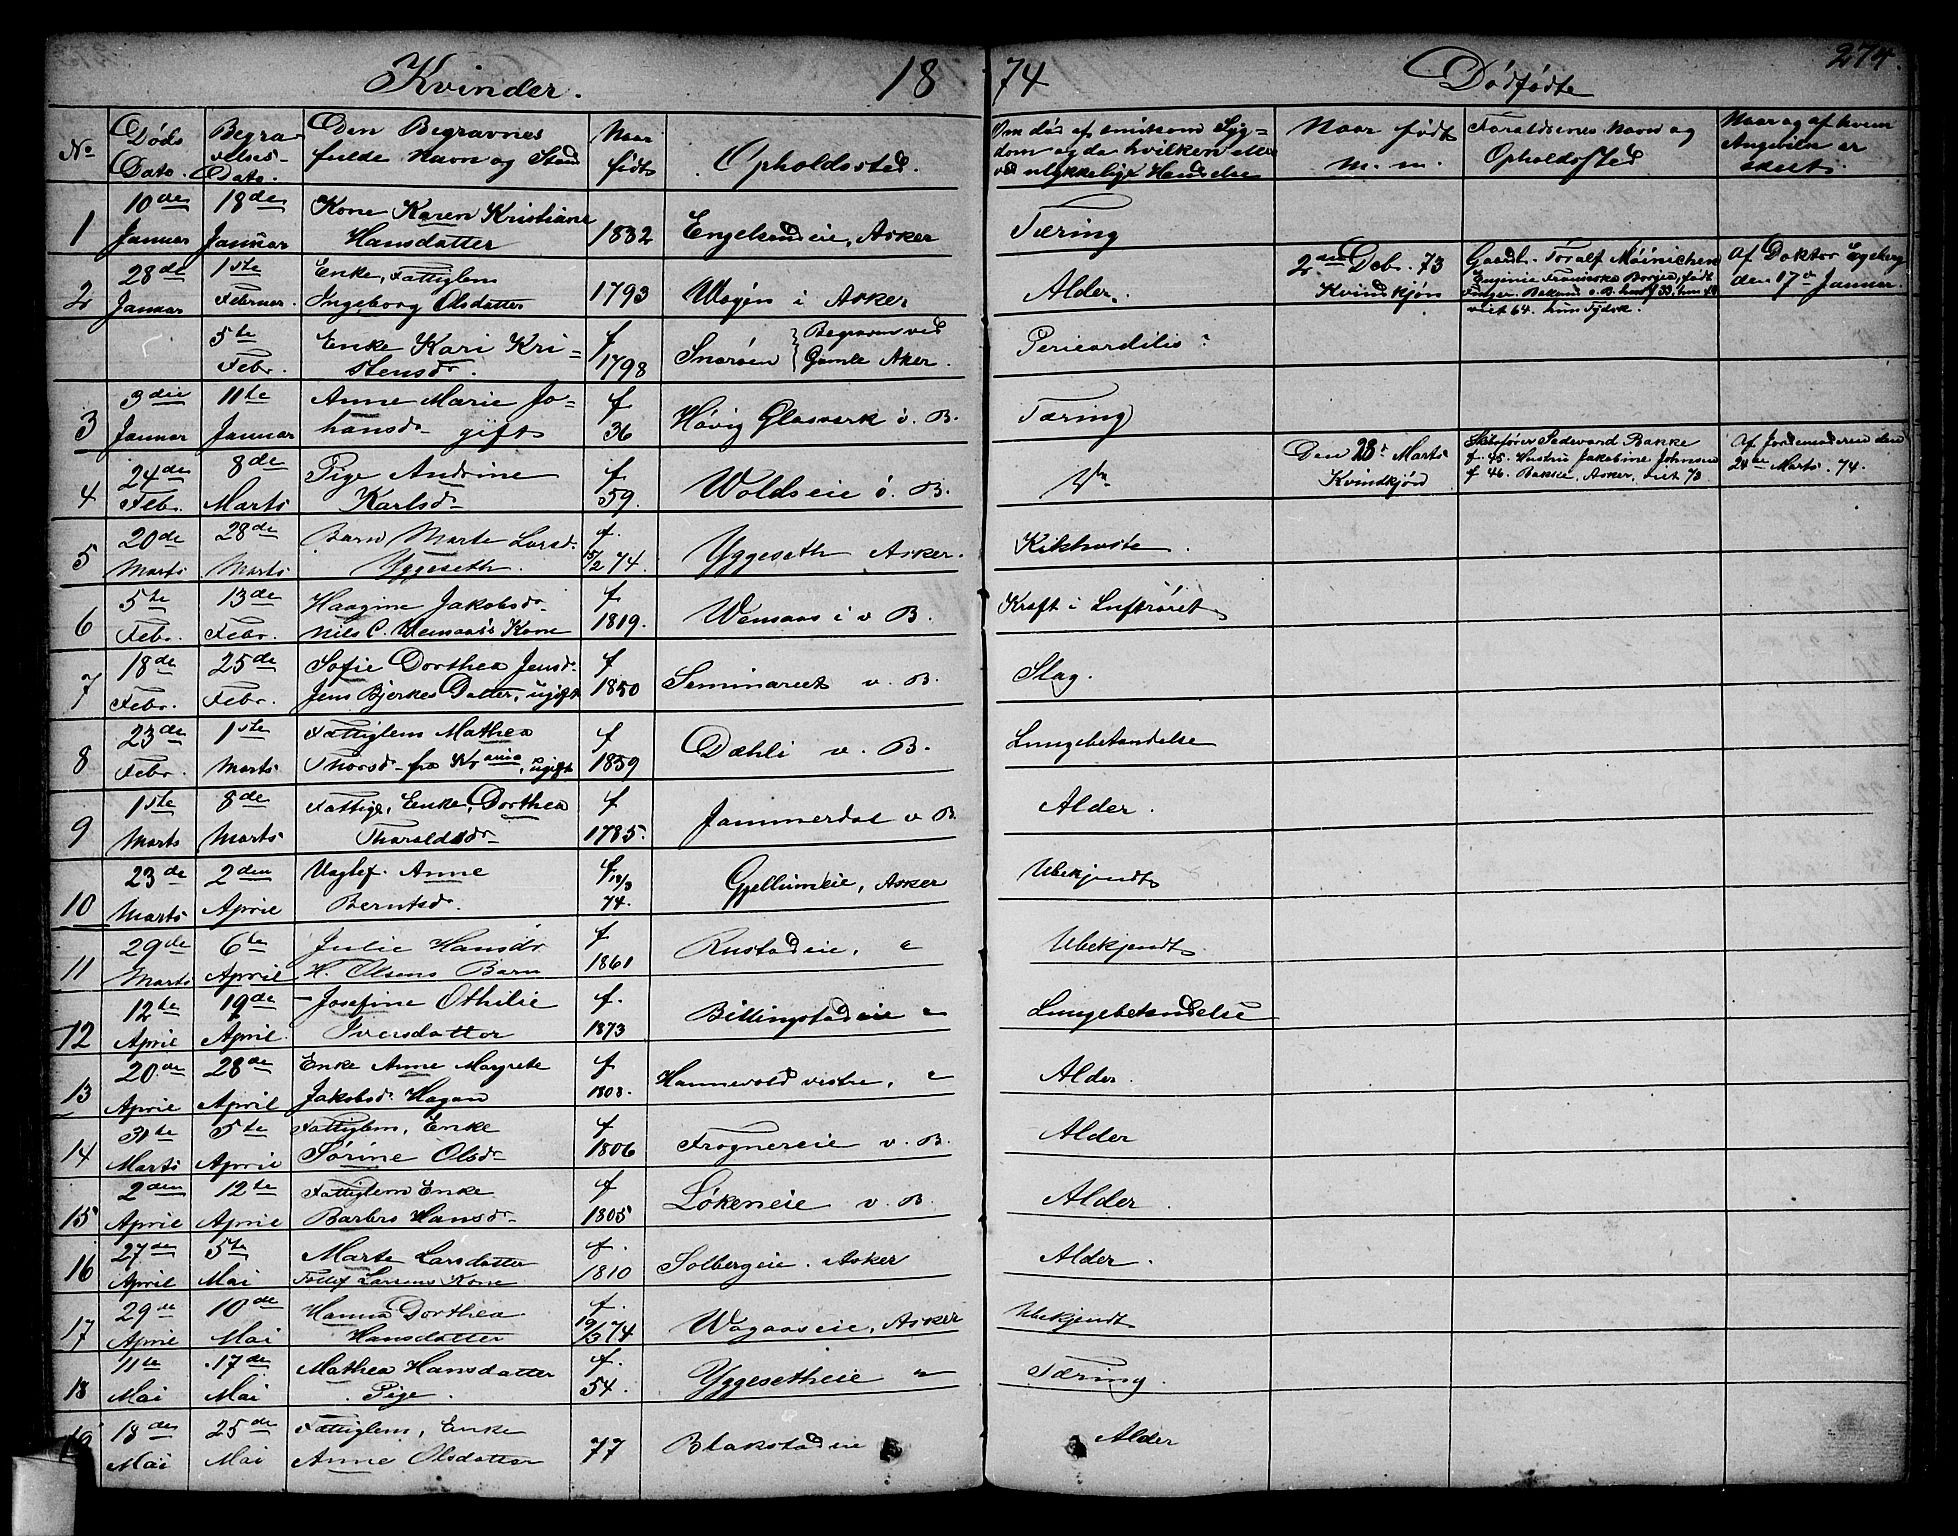 Kvinder. 1874 Dødfødte 274.
No Døds Dato. Begravelses-Dato. Den Begravnes fulde Navn og Stand Naar født Opholdssted. Om død af smitsom Sygdom og da hvilken eller ved ulykkelig Hændelse Naar født m. m. Forældrenes Navn og Opholdssted Naar og af hvem Angiveln er skeet.
1 10de Januar 18de Januar Kone Karen Kristiane Hansdatter 1832 Engelsrudeie, Asker Tæring
2 28de Januar 1ste Februar Enke, Fattiglem Ingeborg Olsdatter 1793 Wøyen i Asker Alder.
2den Dcbr. 73 Kvindkjøn
Gaardb. Toralf Meinichen
Af Doktor Egeberg den 17de Januar.
viet 64. hun Tydsk.
5te Febr. Enke Kari Kristensdr. f 1798 Snarøen Begraven ved Gamle Aker. Pericarditis?
3 3die Januar 11te Januar Anne Marie Johansdr gift f 36 Høvig Glasværk ø. B. Tæring
4 24de Febr. 8de Marts Pige Andrine Karlsdr f 59. Woldseie ø. B.
Den 23de Marts Kvindkjøn
Bakke
f. 45. Hustru Jakobine Johnsen
f 46. Bakke, Asker, viet 73.
Af Jordemoderen den 24de Marts. 74.
5 20de Marts 28de Marts Barn Marte Larsd. Yggeseth. f. 15/2 74. Yggeseth Asker. Kikhoste.
6 5te Febr. 13de Febr. Haagine Jakobsdr. Nils C. Wemaas's Kone f 1819. Wemaas i v B. Kræft i Luftrøret
7 18de Febr. 25de Febr. Sofie Dorthea Jensd. Jens Bjerkes Datter, ugift f 1850 Seminariet v. B. Slag.
8 23de Febr. 1ste Marts Fattiglem Mathea Thorsdr fra Kr.ania, ugift f 1859 Dæhli v. B. Lungebetændelse
9 1ste Marts 8de Marts Fattige, Enke, Dorthea Tharaldsdr f 1785. Jammerdal v B. Alder.
10 23de Marts 2den April Ugtef. Anne Berntsdr. f 74. Gjellumeie, Asker Ubekjendt
11 29de Marts 6te April Julie Hansdr H. Olsens Barn f 1861 Rustadeie, " Ubekjendt.
12 12te April 19de April. Josefine Othilie Iversdatter f. 1873 Billingstadeie " Lungebetændelse
13 20de April 28de April Enke Anne Margrete Jakobsd. Hagen f 1803. Hannevold vestre, " Alder.
14 31te Marts 5te April Fattiglem, Enke Sørine Olsdr f 1806 Frognereie v. B. Alder
15 2den April 12te April Fattiglem Enke Barbro Hansdr f 1805 Løkeneie v. B. Alder.
16 27de April 5te Mai Marte Larsdatter Tollef Larsens Kone f. 1810 Solbergeie. Asker Alder.
17 29de April 10de Mai Hanna Dorthea Hansdatter f. 19/3 74 Wogaaseie, Asker Ubekjendt
18 11te Mai 17de Mai Mathea Hansdatter Pige. f. 54. Yggesetheie " Tæring.
19 18de Mai 25de Mai Fattiglem, Enke Anne Olsdatter 77 Blakstadeie Alder